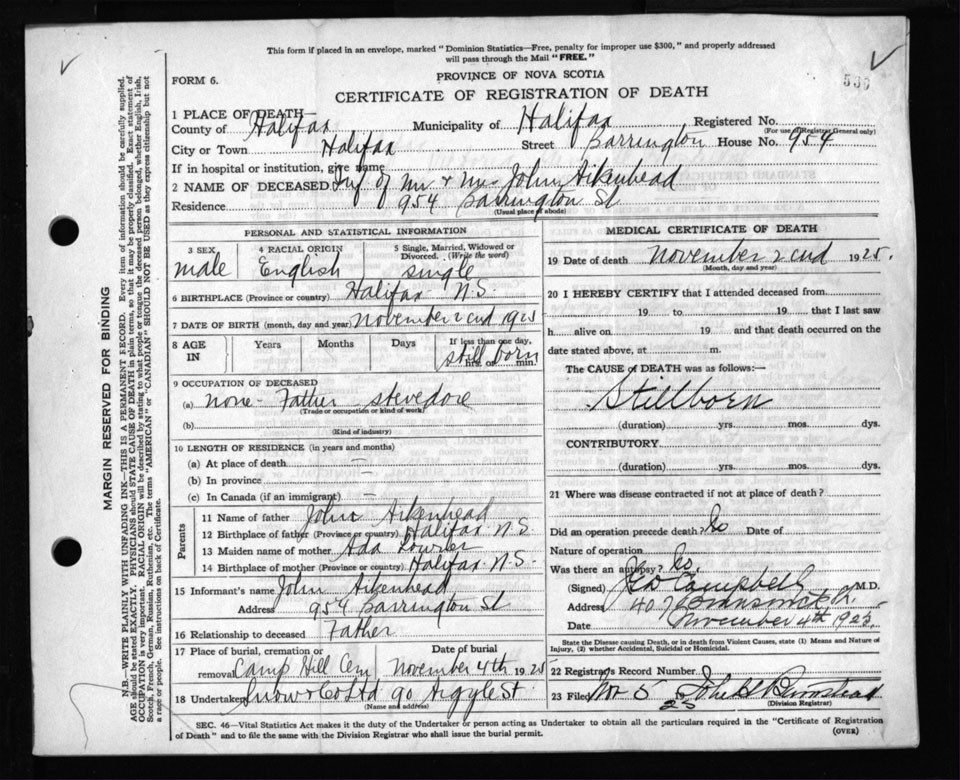 This form if placed in an envelope, marked "Dominion Statistics—Free, penalty for improper use $300," and properly addressed
will pass through the Mail "FREE."
FORM 6.
PROVINCE OF NOVA SCOTIA
CERTIFICATE OF REGISTRATION OF DEATH
1 PLACE OF DEATH
County of Halifax Municipality of Halifax Registered No.
(For use of Registrar General only)
City or Town Halifax Street Barrington House No. 954
If in hospital or institution, give name
2 NAME OF DECEASED Inf of Mr & Mrs John Aikenhead
Residence 954 Barrington St
(Usual place of abode)
PERSONAL AND STATISTICAL INFORMATION
3 SEX male
4 RACIAL ORIGIN English
5 Single, Married, Widowed or Divorced. (Write the word) single
6 BIRTHPLACE (Province or country) Halifax N.S.
7 DATE OF BIRTH (month, day and year) November 2nd 1925
8 AGE IN Years Months Days If less than one day, hrs. or min. still born
9 OCCUPATION OF DECEASED
(a) none - Father stevedore
(Trade or occupation or kind of work)
(b)
(Kind of industry)
10 LENGTH OF RESIDENCE (in years and months)
(a) At place of death —
(b) In province —
(c) In Canada (if an immigrant) —
Parents
11 Name of father John Aikenhead
12 Birthplace of father (Province or country) Halifax N.S.
13 Maiden name of mother Ada
14 Birthplace of mother (Province or country) Halifax N.S.
15 Informant's name John Aikenhead
Address 954 Barrington St
16 Relationship to deceased Father
17 Place of burial, cremation or removal Camp Hill Cem Date of burial November 4th 1925
18 Undertaker Snow & Co Ltd 90 Argyle St
(Name and address)
MEDICAL CERTIFICATE OF DEATH
19 Date of death November 2nd 1925.
(Month, day and year)
20 I HEREBY CERTIFY that I attended deceased from
19 to 19 that I last saw
h alive on 19 and that death occurred on
date stated above, at m.
The CAUSE of DEATH was as follows:—
Stillborn
(duration) yrs. mos. dys.
CONTRIBUTORY
(duration) yrs. mos. dys.
21 Where was disease contracted if not at place of death?
Did an operation precede death? No Date of
Nature of operation
Was there an autopsy? No.
(Signed) Campbell M.D.
Address 407 Brunswick St.
Date November 4th 1925
State the Disease causing Death, or in death from Violent Causes, state (1) Means and Nature of
Injury, (2) whether Accidental, Suicidal or Homicidal.
22 Registrars Record Number
23 Filed Nov 5 25 John
(Division Registrar)
SEC. 46—Vital Statistics Act makes it the duty of the Undertaker or person acting as Undertaker to obtain all the particulars required in the "Certificate of Registration
of Death" and to file the same with the Division Registrar who shall issue the burial permit.
(OVER)
MARGIN RESERVED FOR BINDING
N.B.—WRITE PLAINLY WITH UNFADING INK—THIS IS A PERMANENT RECORD. Every item of information should be carefully supplied.
AGE should be stated EXACTLY. PHYSICIANS should STATE CAUSE OF DEATH in plain terms, so that it may be properly classified. Exact statement of
OCCUPATION is very important. RACIAL ORIGIN will be described by stating to what people or tongue the deceased person belonged, whether English, Irish,
Scotch, French, German, Russian, Ruthenian, etc. The terms "AMERICAN" or "CANADIAN" SHOULD NOT BE USED as they express citizenship but not
a race or people. See instructions on back of Certificate.